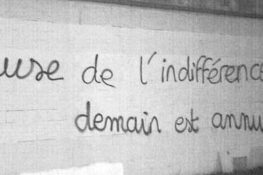 use de l'indifférence
demain est annu